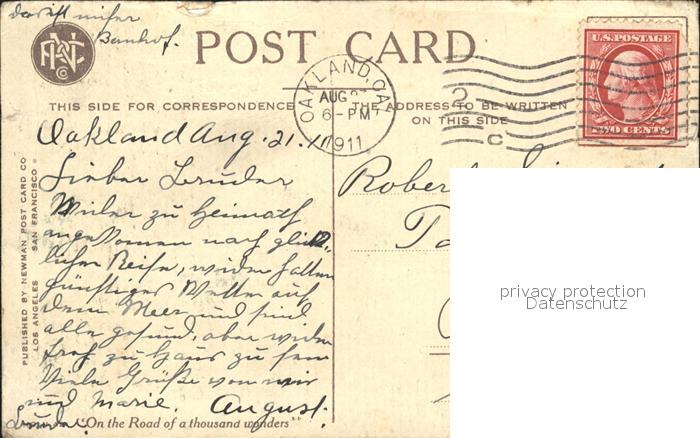 da ist unser
Bahnhof.
POST CARD
U.S. POSTAGE
TWO CENTS
OAKLAND, CAL
AUG
6-PM
1911
2
C
THIS SIDE FOR CORRESPONDENCE
THE ADDRESS TO BE WRITTEN
ON THIS SIDE
Oakland Aug. 21. /11
Lieber Bruder
Wieder zu Heimath
angekommen nach glück-
licher Reise, wieder hatten
günstiges Wetter auf
dem Meer und sind
alle gesund, aber wieder
froh zu Haus zu sein
Viele Grüße von mir
und Marie. August.
Bruder
"On the Road of a thousand wonders"
PUBLISHED BY NEWMAN POST CARD CO.
LOS ANGELES SAN FRANCISCO
Rober
privacy protection
Datenschutz